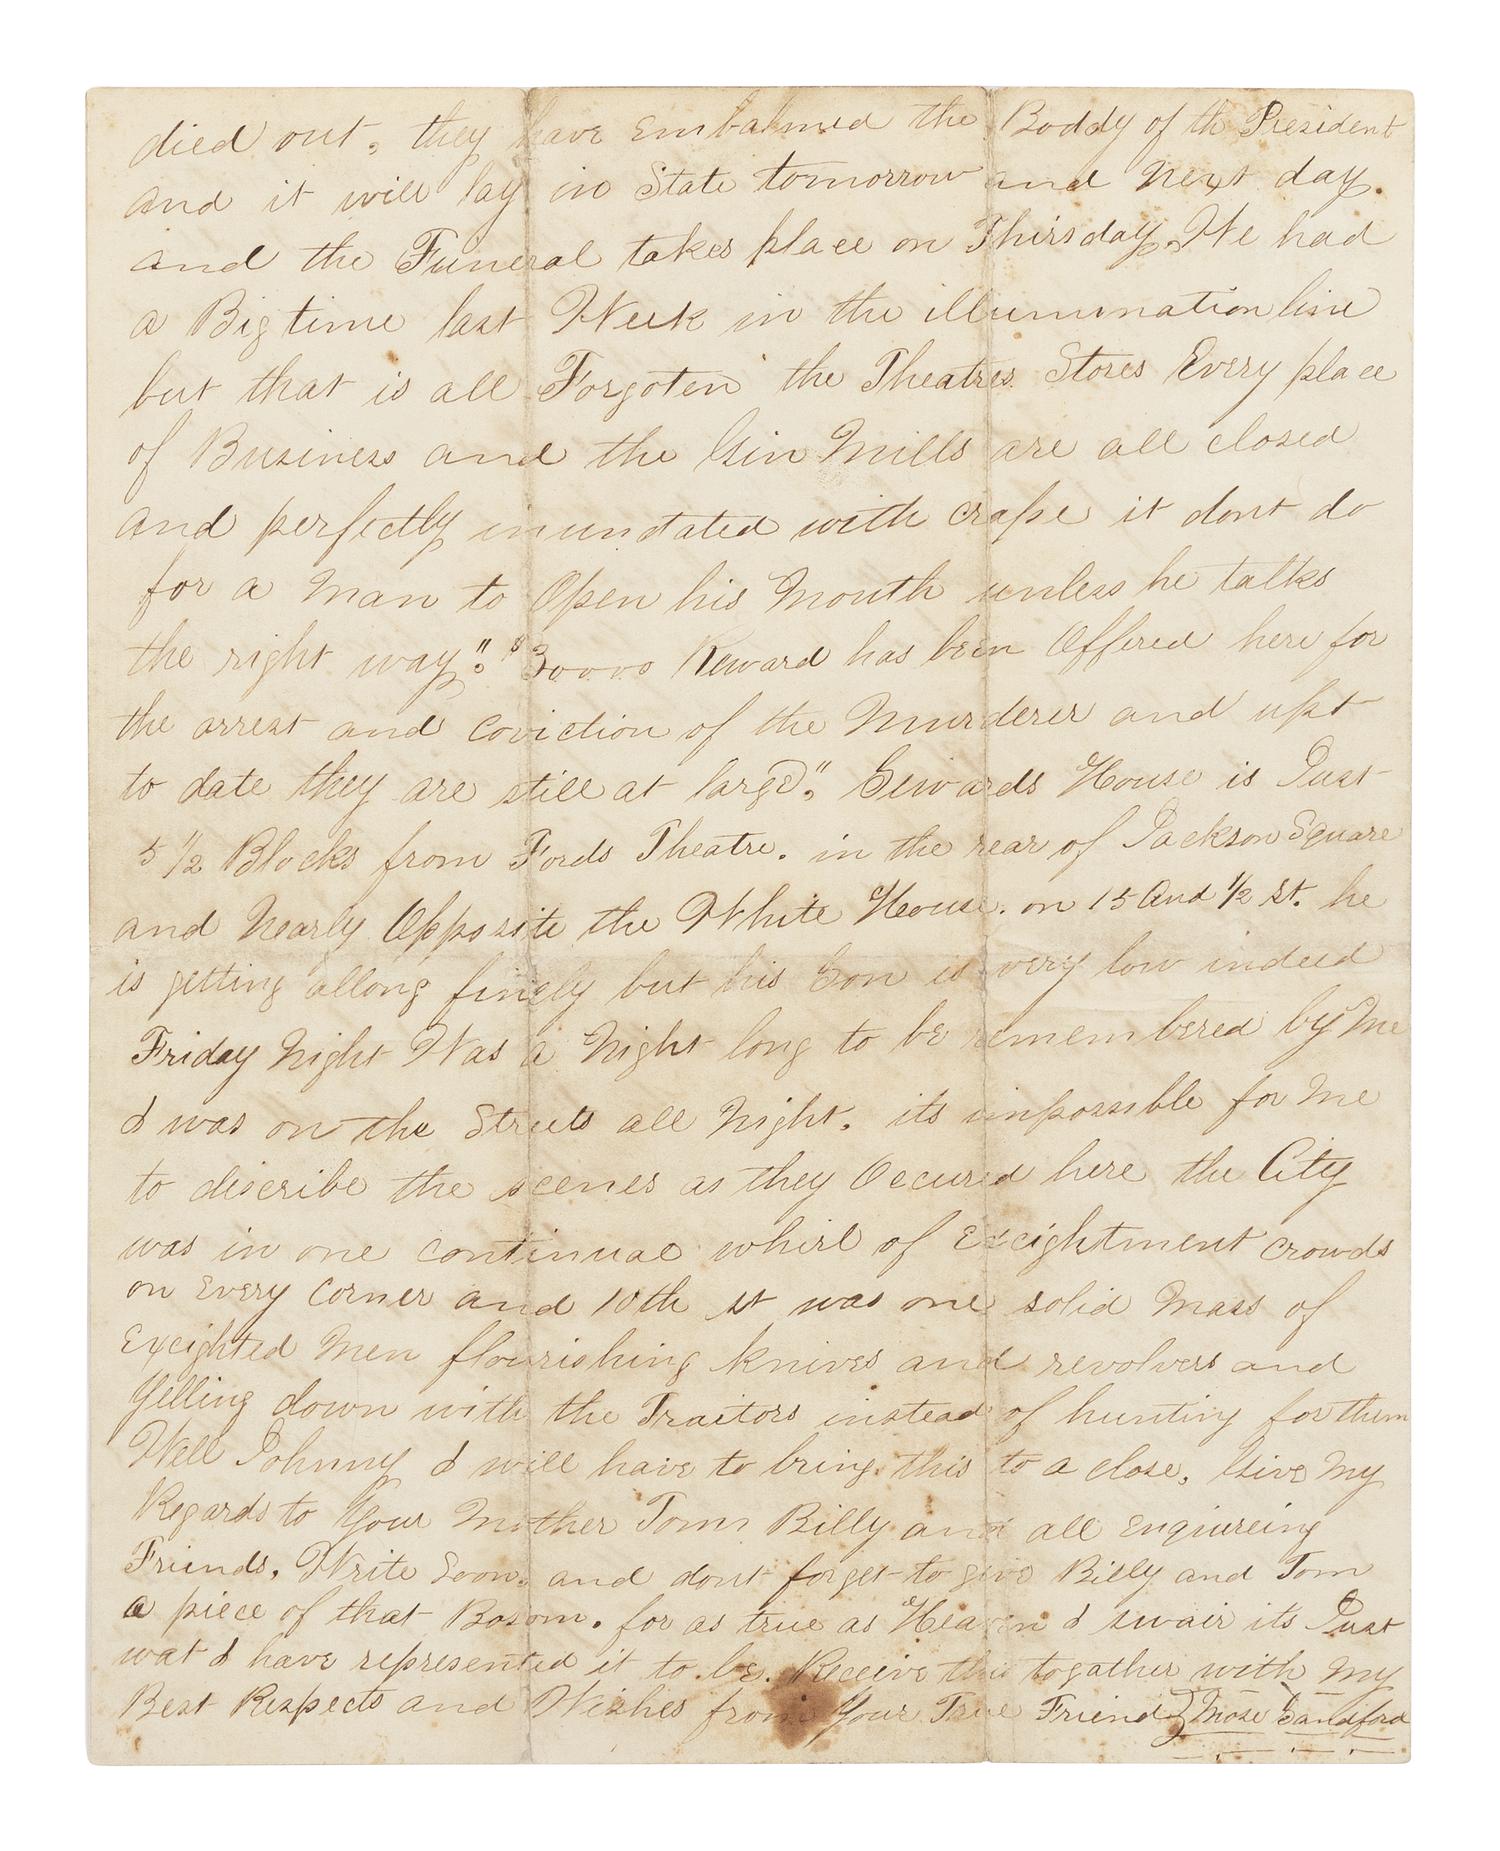 died out, they have Embalmed the Boddy of th President
and it will lay in State tomorrow and Next day.
and the Funeral takes place on Thirsday. We had
a Big time last Week in the illumination line
but that is all Forgoten the Theatres Stores Every place
of Business and the Gin Mills are all closed
and perfectly inundated with crape it dont do
for a Man to Open his Mouth unless he talks
the right way". "$30000 Reward has been Offered here for
the arrest and coviction of the Murderer and upt
to date they are still at large". Sewards House is Just
5 1/2 Blocks from Fords Theatre. in the rear of Jackson Square
and Nearly Opposite the White House. on 15 And 1/2 St. he
is getting allong finely but his Son is very low indeed
Friday Night Was a Night long to be remembered by Me
I was on the Streets all Night. its impossible for Me
to discribe the scenes as they Occured here the City
was in one continual whirl of Exceightment crowds
on Every Corner and 10th st was one solid Mass of
Exceighted Men flourishing knives and revolvers and
Yelling down with the Traitors instead of hunting for them
Well Johnny I will have to bring this to a close. Give My
Regards to Your Mother Tom Billy and all Enquireing
Friends. Write Soon. and dont forget to give Billy and Tom
a piece of that Bosom. for as true as Heaven I swair its Just
wat I have represented it to be. Receive this togather with My
Best Respects and Wishes from Your True Friend Mose Sandford